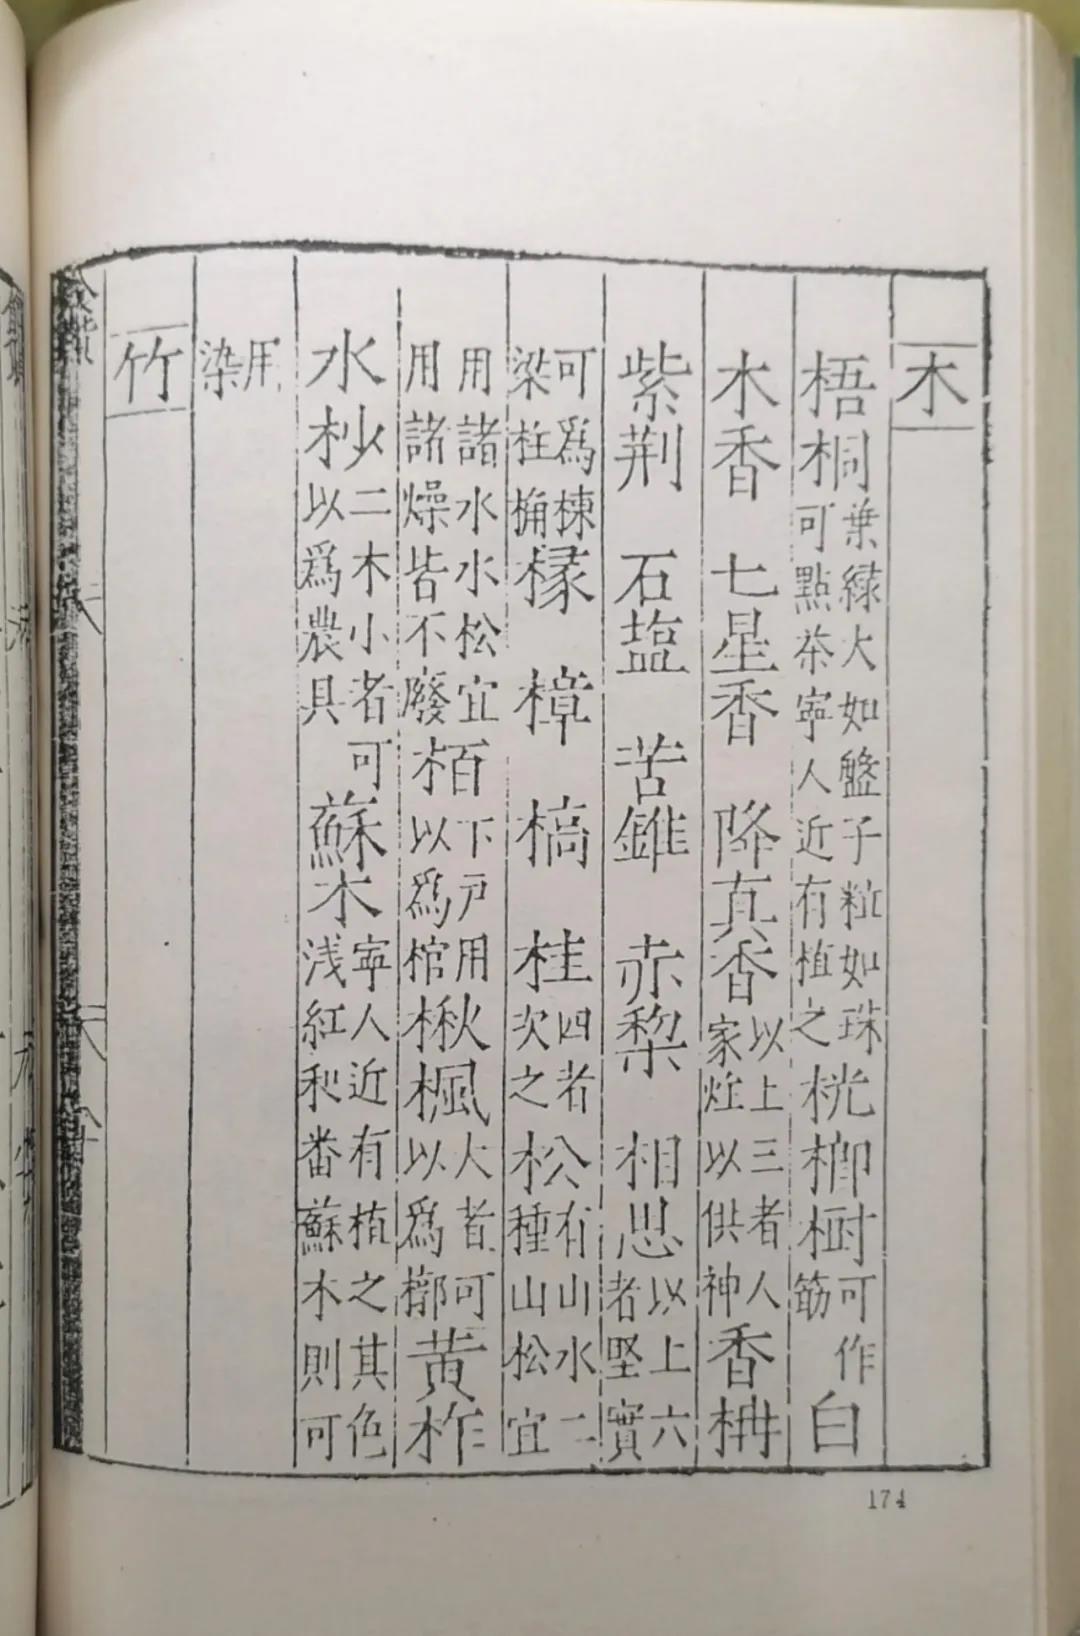 木
梧桐葉緑大如盤子粒如珠可點茶寧人近有植之桄榔樹可作筯白
木香 七星香 降真香以上三者人家炷以供神香柟
紫荆 石塩 苦錐 赤梨 相思以上六者堅實
可爲棟梁柱桷椽 樟 槁 桂四者次之松有山水二種山松宜
用諸水水松宜用諸燥皆不廢栢下戸用以爲棺楸楓大者可以爲槨黄柞
水杪二木小者可以爲農具蘇木寧人近有植之其色浅紅和番蘇木則可
用染
竹
174